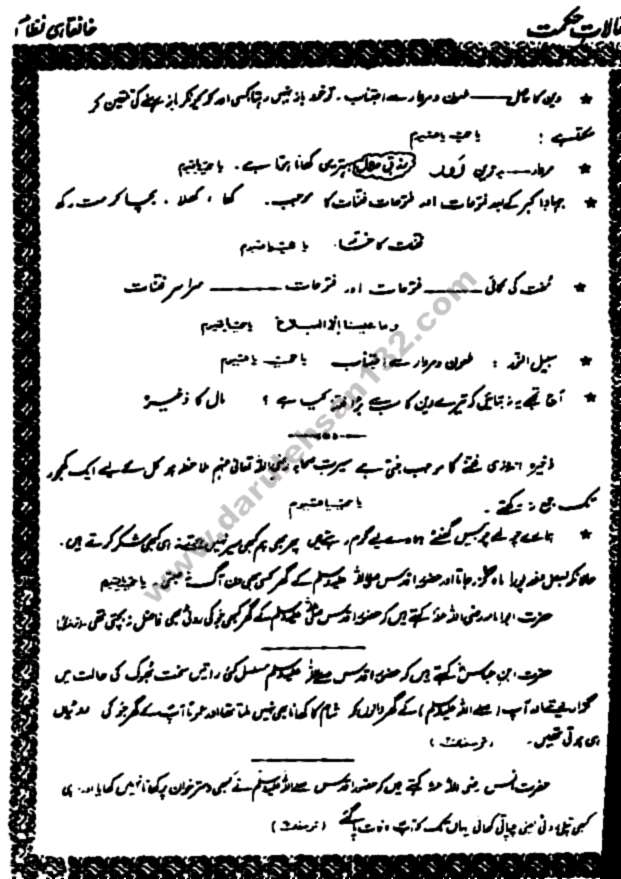 مقالات حکمت
خانقاہی نظام
★ دین کا حاصل —— طعون و مردار سے اجتناب۔ تو خود باز نہیں رہتا کسی اور کو کیونکر باز رہنے کی تلقین کر
سکتا ہے؛ یا حی یا قیوم
★ مردار —— بدترین اور رزق حلال بہترین کھانا ہوتا ہے۔ یا حی یا قیوم
★ جہاد اکبر کے بعد فتوحات اور فتوحات فتنات کا موجب۔ کھا، کھلا۔ بچا کر مت رکھ
یا حی یا قیوم
★ محنت کی کمائی —— فتوحات اور فتوحات —— سراسر فتنات
وما علینا الا البلاغ یا حی یا قیوم
★ سبیل اللہ: طعون و مردار سے اجتناب یا حی یا قیوم
★ آج تجھے یہ نہ بتائیں کہ تیرے دین کا سب سے بڑا فتنہ کیا ہے؟ مال کا ذخیرہ
ذخیرہ اندوزی فتنے کا موجب بنتی ہے سیرت صحابہ رضی اللہ تعالٰی عنہم ملاحظہ ہو کل کے لیے ایک کھجور
تک جمع نہ رکھتے۔ یا حی یا قیوم
★ ہمارے چولہے چوبیس گھنٹے ہمارے لیے گرم رہتے ہیں پھر بھی ہم کبھی سیر نہیں ہوتے نہ ہی کبھی شکر کرتے ہیں۔
حالانکہ بعض دفعہ پورا ماہ گزر جاتا اور حضور اقدس صلی اللہ علیہ وسلم کے گھر کسی بھی دن آگ نہ جلتی۔ یا حی یا قیوم
حضرت ابو امامہ رضی اللہ عنہ کہتے ہیں کہ حضور اقدس صلی اللہ علیہ وسلم کے گھر کبھی جو کی روٹی بھی فاضل نہ بچتی تھی۔ (ترمذی)
حضرت ابن عباس کہتے ہیں کہ حضور اقدس صلی اللہ علیہ وسلم مسلسل کئی راتیں سخت بھوک کی حالت میں
گزار لیتے اور آپ (صلی اللہ علیہ وسلم) کے گھر والوں کو شام کا کھانا بھی نہیں ملتا تھا اور عموماً آپ کے گھر جو کی روٹیاں
ہی ہوتی تھیں۔ (ترمذی)
حضرت انس رضی اللہ عنہ کہتے ہیں کہ حضور اقدس صلی اللہ علیہ وسلم نے کبھی دسترخوان پر کھانا نہیں کھایا اور نہ ہی
کبھی پتلی روٹی یعنی چپاتی کھائی یہاں تک کہ آپ وفات پا گئے (ترمذی)
www.darulehsan132.com